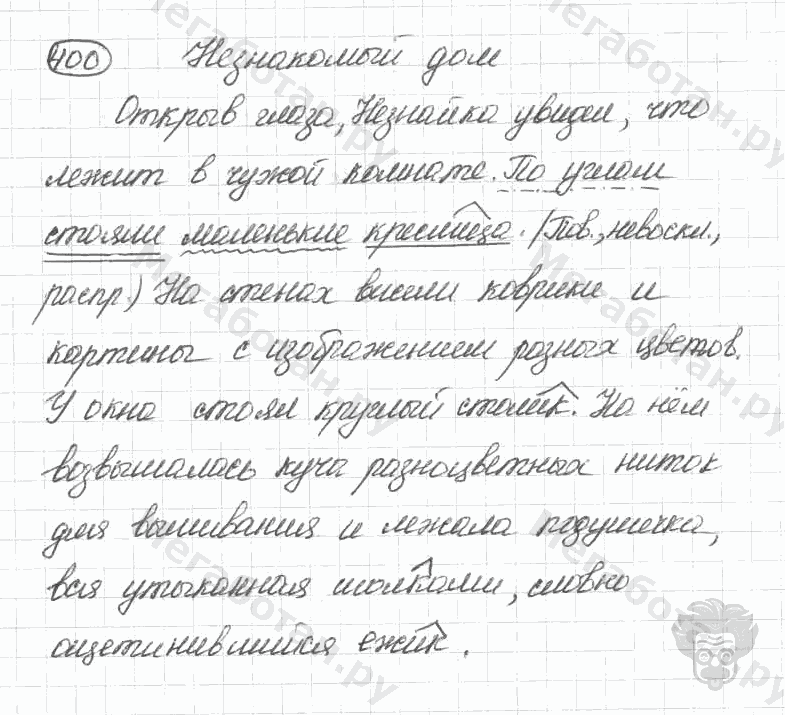 400 Незнакомый дом
Открыв глаза, Незнайка увидел, что
лежит в чужой комнате. По углам
стояли маленькие креслица. (Пов., невоскл.,
распр.) На стенах висели коврики и
картины с изображением разных цветов.
У окна стоял круглый столик. На нём
возвышалась куча разноцветных ниток
для вышивания и лежала подушечка,
вся утыканная иголками, словно
ощетинившийся ёжик.
Мегаботан.ру